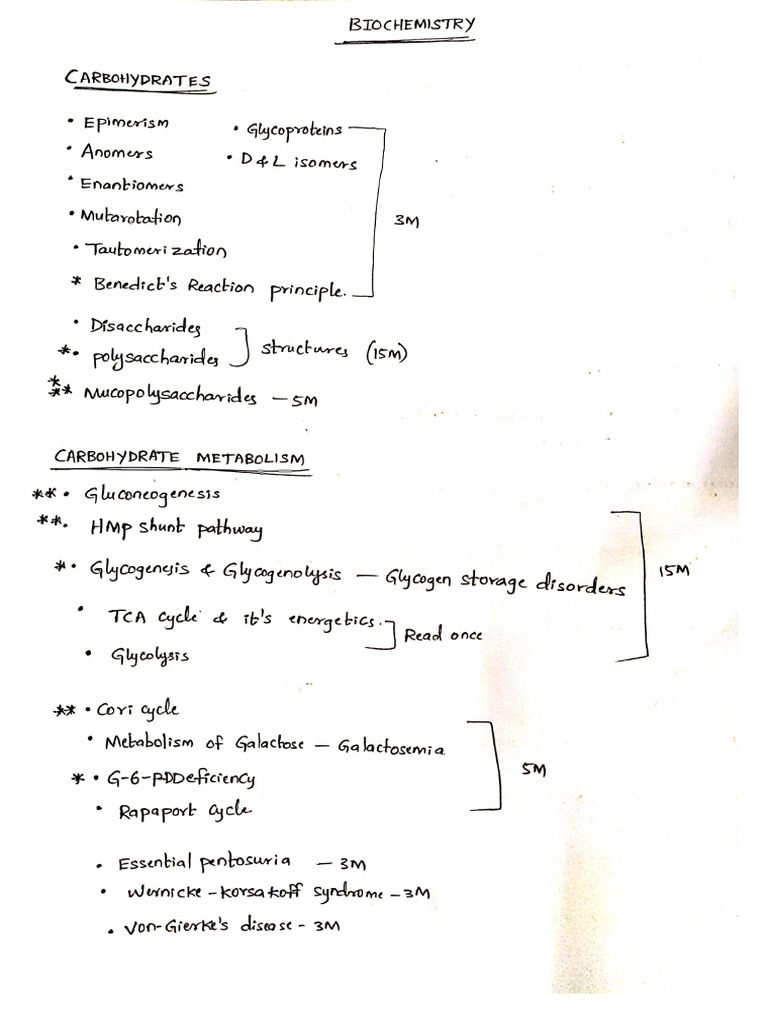 BIOCHEMISTRY
CARBOHYDRATES
• Epimerism • Glycoproteins
• Anomers • D & L isomers
• Enantiomers
• Mutarotation 3M
• Tautomerization
* Benedict's Reaction principle.
• Disaccharides
*• polysaccharides structures (15M)
*** Mucopolysaccharides – 5M
CARBOHYDRATE METABOLISM
**• Gluconeogenesis
**• HMP shunt pathway
*• Glycogenesis & Glycogenolysis – Glycogen storage disorders 15M
• TCA cycle & it's energetics.
Read once
• Glycolysis
**• Cori cycle
• Metabolism of Galactose – Galactosemia
*• G-6-PDDeficiency 5M
• Rapaport cycle
• Essential pentosuria – 3M
• Wernicke-korsakoff syndrome – 3M
• Von-Gierke's disease - 3M